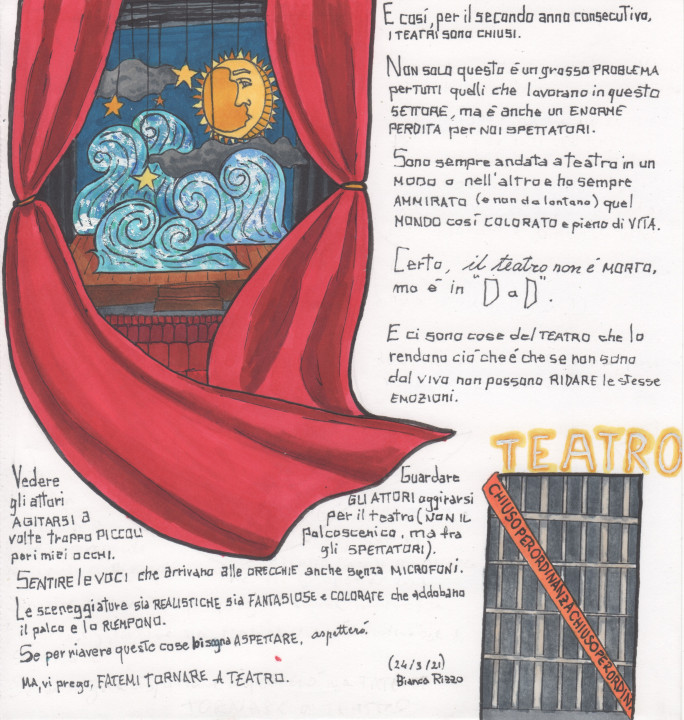 E così, per il secondo anno consecutivo,
I TEATRI sono CHIUSI.
NON SOLO questo è un grosso PROBLEMA
per TUTTI quelli che lavorano in questo
SETTORE, ma è anche un ENORME
PERDITA per NOI SPETTATORI.
Sono sempre andata a teatro in un
MODO o nell'altro e ho sempre
AMMIRATO (e non da lontano) quel
MONDO così COLORATO e pieno di VITA.
Certo, il teatro non è MORTO,
ma è in "D a D".
E ci sono cose del TEATRO che lo
rendono ciò che è che se non sono
dal vivo non possono RIDARE le stesse
EMOZIONI.
TEATRO
CHIUSO PER ORDINANZA CHIUSO PER ORDINA
Vedere
gli attori
AGITARSI a
volte troppo PICCOLI
per i miei occhi.
Guardare
GLI ATTORI aggirarsi
per il teatro (NON IL
palcoscenico, ma fra
gli SPETTATORI).
SENTIRE le VOCI che arrivano alle ORECCHIE anche senza MICROFONI.
Le sceneggiature sia REALISTICHE sia FANTASIOSE e COLORATE che addobbano
il palco e lo RIEMPONO.
Se per riavere queste cose bisogna ASPETTARE, aspetterò.
MA, vi prego, FATEMI TORNARE A TEATRO.
(24/3/21)
Bianca Rizzo